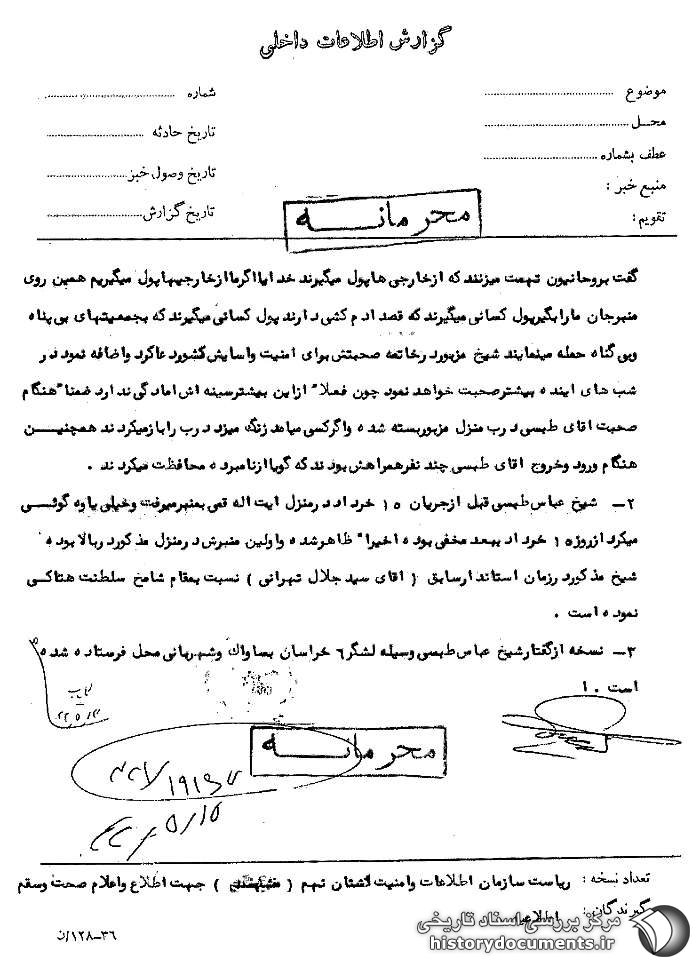 گزارش اطلاعات داخلی
موضوع
شماره
محل
تاریخ حادثه
عطف بشماره
تاریخ وصول خبر
منبع خبر :
تاریخ گزارش
تقویم :
محرمانه
گفت بروحانیون تهمت میزنند که ازخارجی هاپول میگیرند خدایااگرماازخارجیهاپول میگیریم همین روی
منبرجان مارابگیرپول کسانی میگیرند که قصد ادم کشی دارند پول کسانی میگیرند که بجمعیتهای بی پناه
وبی گناه حمله مینمایند شیخ مزبورد رخاتمه صحبتش برای امنیت واسایش کشورد عاکرد واضافه نمود در
شب های اینده بیشترصحبت خواهد نمود چون فعلا" ازاین بیشترسینه اش امادگی ندارد ضمنا" هنگام
صحبت اقای طبسی درب منزل مزبوربسته شده واگرکسی میامد زنگ میزد درب رابازمیکردند همچنیـن
هنگام ورود وخروج اقای طبسی چند نفرهمراهش بودند که گویاازنامبرده محافظت میکردند .
۲ـ شیخ عباس طبسی قبل ازجریان ۱۵ خرداد درمنزل ایت اله قمی بمنبرمیرفت وخیلی یاوه گوئـی
میکرد ازروز۱۵ خرداد ببعد مخفی بوده اخیرا" ظاهرشده واولین منبرش درمنزل مذکورد ربالا بوده
شیخ مذکورد رزمان استاندارسابق ( اقای سید جلال تهرانی ) نسبت بمقام شامخ سلطنت هتاکی
نموده است .
۳ـ نسخه ازگفتارشیخ عباس طبسی وسیله لشگر۶ خراسان بساواک وشهربانی محل فرستاده شده
است . ا
محرمانه
تعداد نسخه :
ریاست سازمان اطلاعات وامنیت کشور جهت اطلاع واعلام صحت وسقم
گیرندگان :
اطلاعیه
۳۶ـ۱۲۸/ن
مرکز بررسی اسناد تاریخی
historydocuments.ir